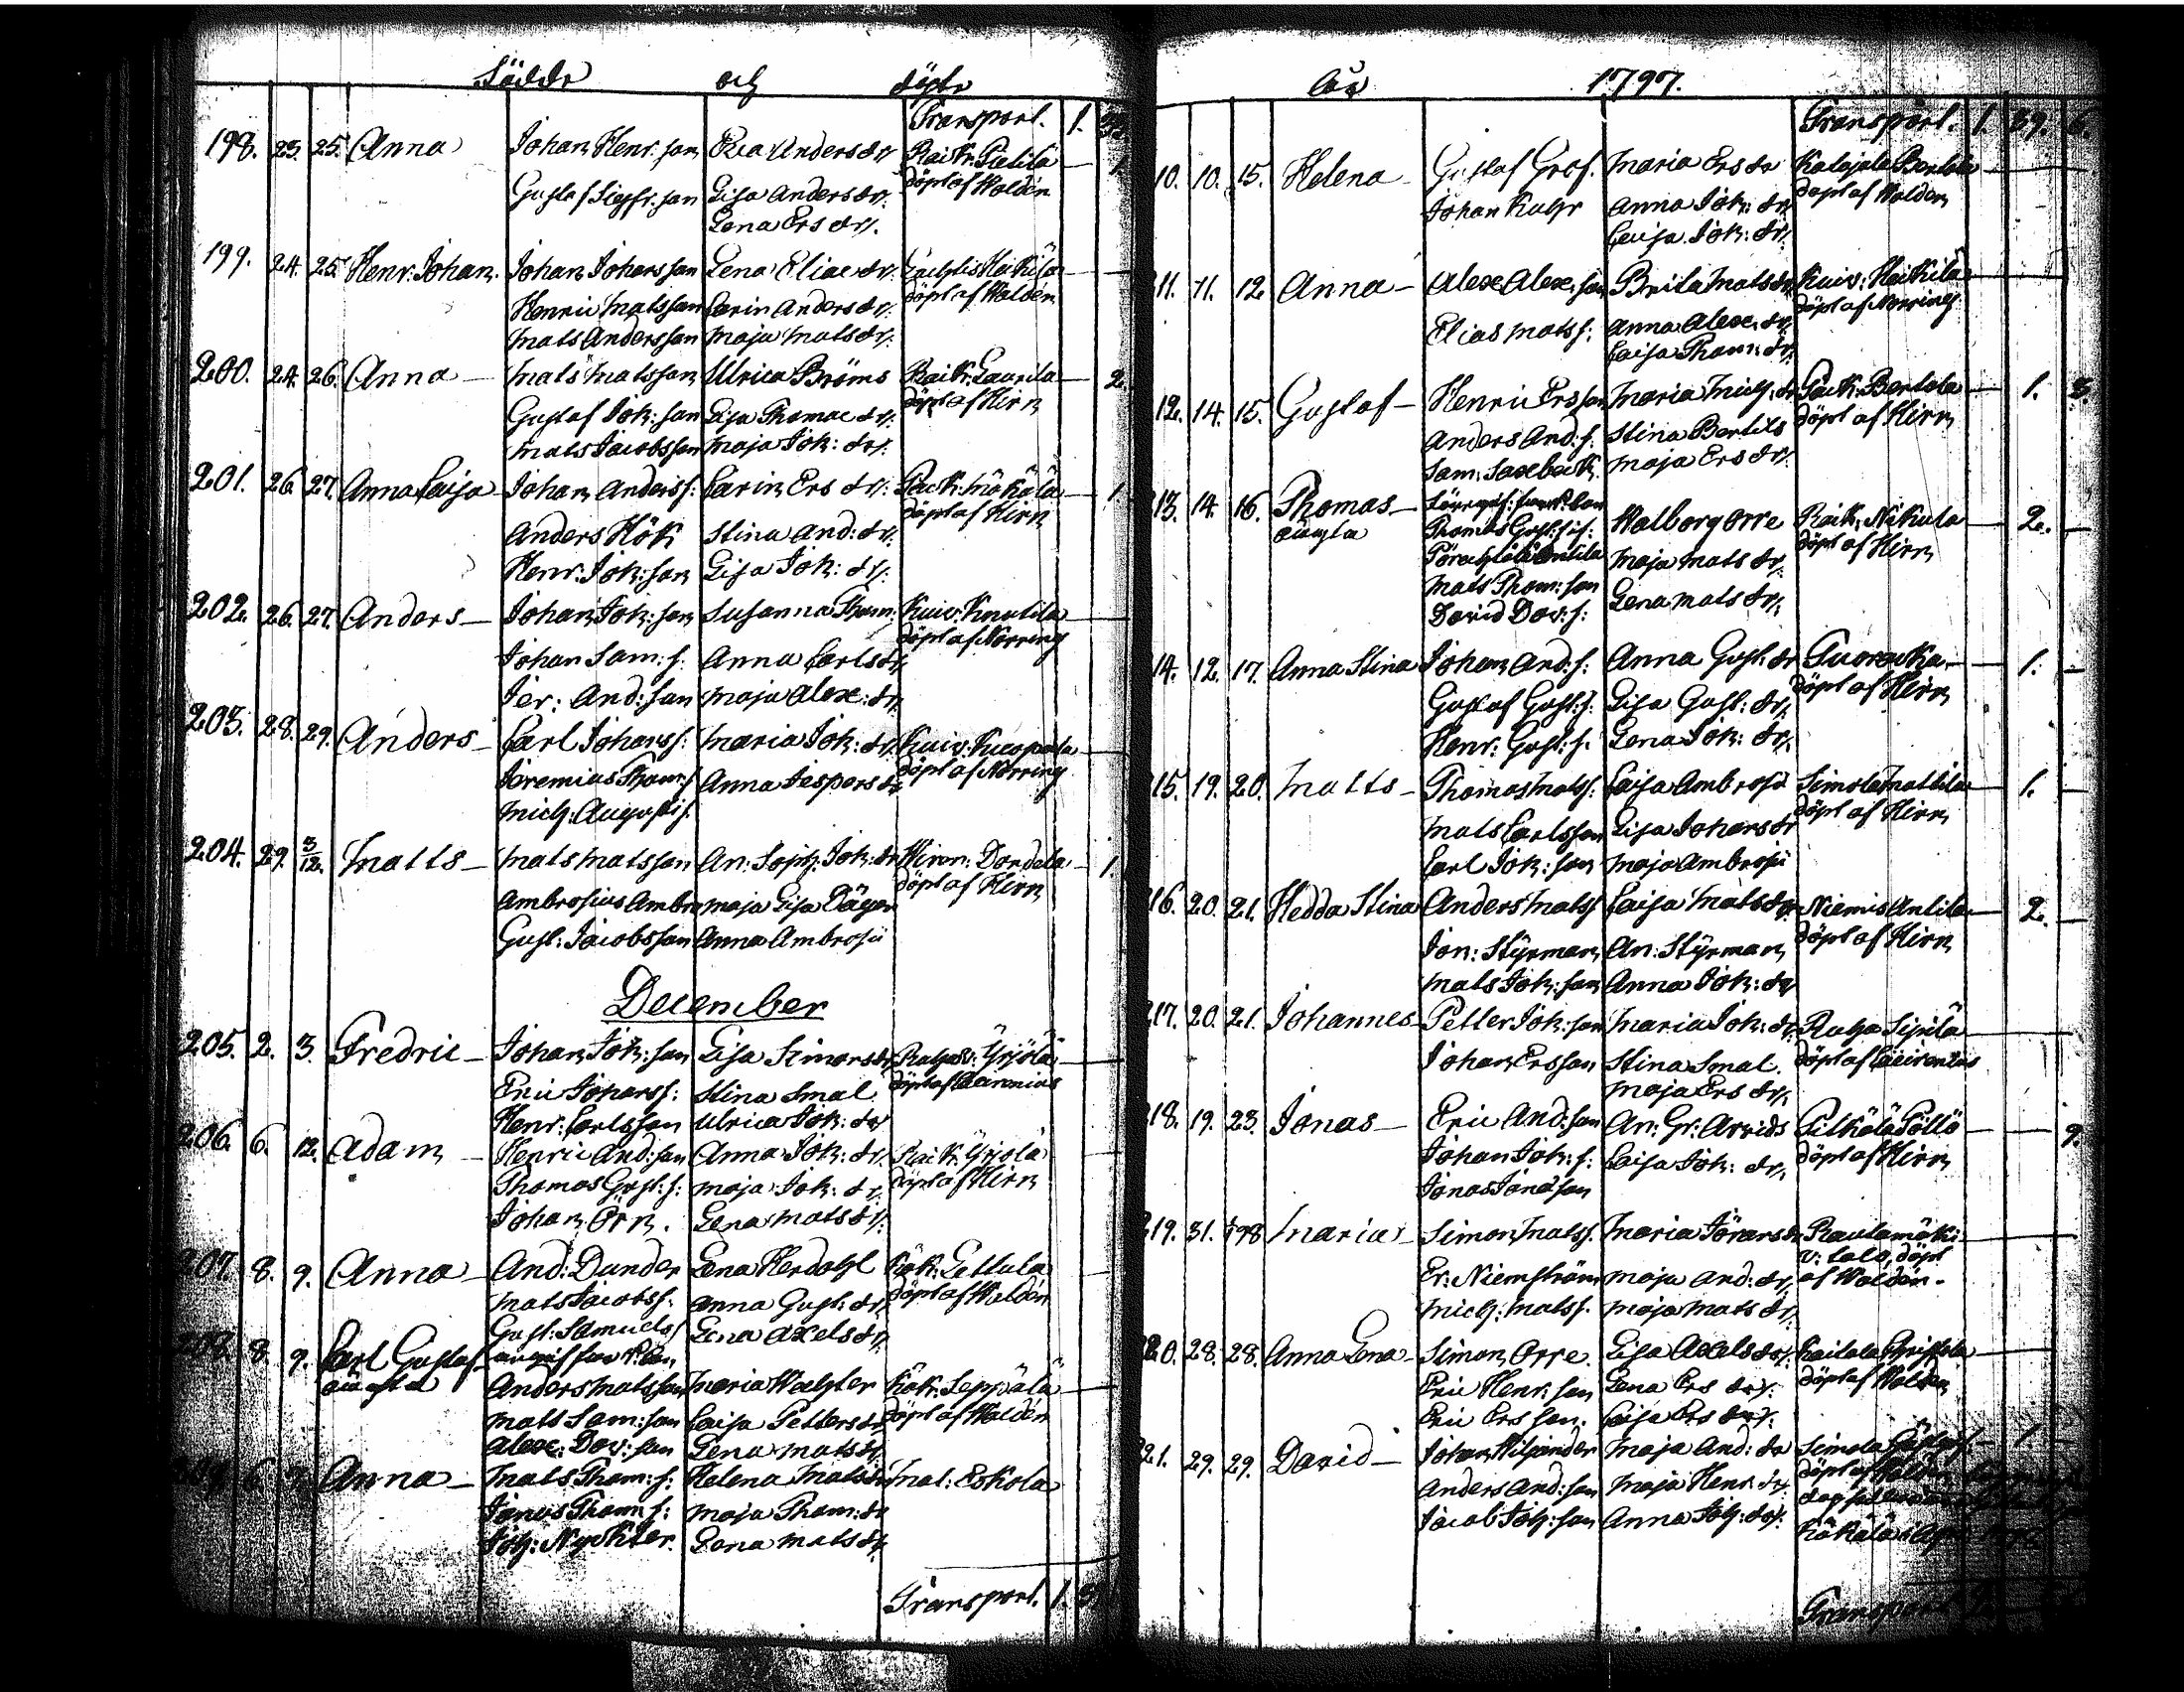 Födde och döpte
Transport. 1.
198. 23. 25. Anna Johan Henr. son Eva Anders dr. Raik. Pietilä
döpt af Walden
Gustaf Sigfr. son Lisa Anders dr.
Lena Ers dr.
199. 24. 25. Henr. Johan. Johan Johansson Lena Eliae dr. Heikilä
döpt af Walden
Henric Matsson Carin Anders dr.
Mats Andersson Maja Mats dr.
200. 24. 26. Anna Mats Matsson Ulrica Bröms Raik. Laurila 2.
döpt af Hirn
Gustaf Joh: son Lisa Thomae dr.
Mats Jacobsson Maja Joh: dr.
201. 26. 27. Anna Caisa Johan Anders s: Carin Ers dr. 1.
döpt af Hirn
Anders Hök Stina And: dr.
Henr. Joh: son Lisa Joh: dr.
202. 26. 27. Anders Johan Joh: son Susanna Thom: Kuiv. Knutila
döpt af Norring
Johan Sam: s. Anna Carls dr.
Jer: And: son Maja Alex: dr.
203. 28. 29. Anders Carl Johans s: Maria Joh: dr. Kuiv. Kuoppala
döpt af Norring
Jeremias Thom: s Anna Jespers dr.
Mich: Augusti s.
204. 29. 3/12. Matts Mats Matsson An: Soph. Joh: dr Dondela 1.
döpt af Hirn
Ambrosius Ambro Maja Lisa Däger
Gust: Jacobsson Anna Ambrosii
December
205. 2. 3. Fredric Johan Joh: son Lisa Simons dr. Yrjölä
döpt af
Eric Johans s: Stina Smal
Henr: Carlsson Ulrica Joh: dr
206. 6. 12. Adam Henric And: son Anna Joh: dr. Raik. Yrjölä
döpt af Hirn
Thomas Gust: s: Maja Joh: dr.
Johan Örn. Lena Mats dr.
207. 8. 9. Anna And: Dunder Lena Herdahl Kök: Lettula
döpt af Walden
Mats Jacobs s. Anna Gust: dr.
Gust: Samuels s Lena Axels dr.
208. 8. 9. Carl Gustaf
oäkta Anders Matsson Maria Wachter Kök. Seppälä
döpt af Walden
Mats Sam: son Caisa Petters dr.
Alex: Dav: son Lena Mats dr.
6. Anna Mats Thom: s. Helena Mats dr Mat: Eskola
Jonas Thom: s: Maja Thom: dr
Joh: Nyckter. Lena Mats dr.
Transport. 1.
åu 1797.
Transport. 1. 39. 6.
10. 10. 15. Helena Gustaf Grof. Maria Ers dr Kalajala Bertola
döpt af Walden
Johan Anna Joh: dr.
Caisa Joh: dr.
11. 11. 12. Anna Alex Alex: son Brita Mats dr. Kuiv: Heikilä
döpt af Norring
Elias Mats s: Anna Alex: dr.
Caisa Thom: dr.
12. 14. 15. Gustaf Henric Ers son Maria Mich: dr Bertola 1. 3.
döpt af Hirn
Anders And: s. Stina Bertils
Sam: Saxebeck Maja Ers dr.
13. 14. 16. Thomas
oäkta Walborg Orre Raik. Nikula 2.
döpt af Hirn
Maja Mats dr.
Mats Thom: son
David Dav: s: Lena Mats dr.
14. 12. 17. Anna Stina Johan And: s: Anna Gust: dr Tuorakka 1.
döpt af Hirn
Gustaf Gust: s. Lisa Gust: dr.
Henr: Gust: s. Lena Joh: dr.
15. 19. 20. Matts Thomas Mats s: Caisa Ambrosii Simola Mattila 1.
döpt af Hirn
Mats Carlsson Lisa Johans dr
Carl Joh: son Maja Ambrosii
16. 20. 21. Hedda Stina Anders Mats s Caisa Mats dr. Niemis Antila 2.
döpt af Hirn
Jon: Styrman An: Styrman
Mats Joh: son Anna Joh: dr
217. 20. 21. Johannes Petter Joh: son Maria Joh: dr. Sipilä
döpt af
Johan Ersson Stina Smal.
Maja Ers dr.
218. 19. 23. Jonas Eric And: son An: Gr: Arvids Pilkälä Pöllö 9.
döpt af Hirn
Johan Joh: s: Caisa Joh: dr.
Jonas Jonasson
219. 31. Maria Simon Mats s. Maria Jörans dr Rautamäki
döpt
af Walden.
Er: Niemström Maja And: dr.
Mich: Mats s. Maja Mats dr.
220. 28. 28. Anna Lena Simon Orre. Lisa Axels dr. Kailala
döpt af Walden
Eric Henr: son Lena Ers dr.
Eric Ers son. Caisa Ers dr.
221. 29. 29. David Johan Maja And: dr Simola 1
döpt af
Anders And: son Maja Henr: dr.
Jacob Joh: son Anna Joh: dr.
Transport